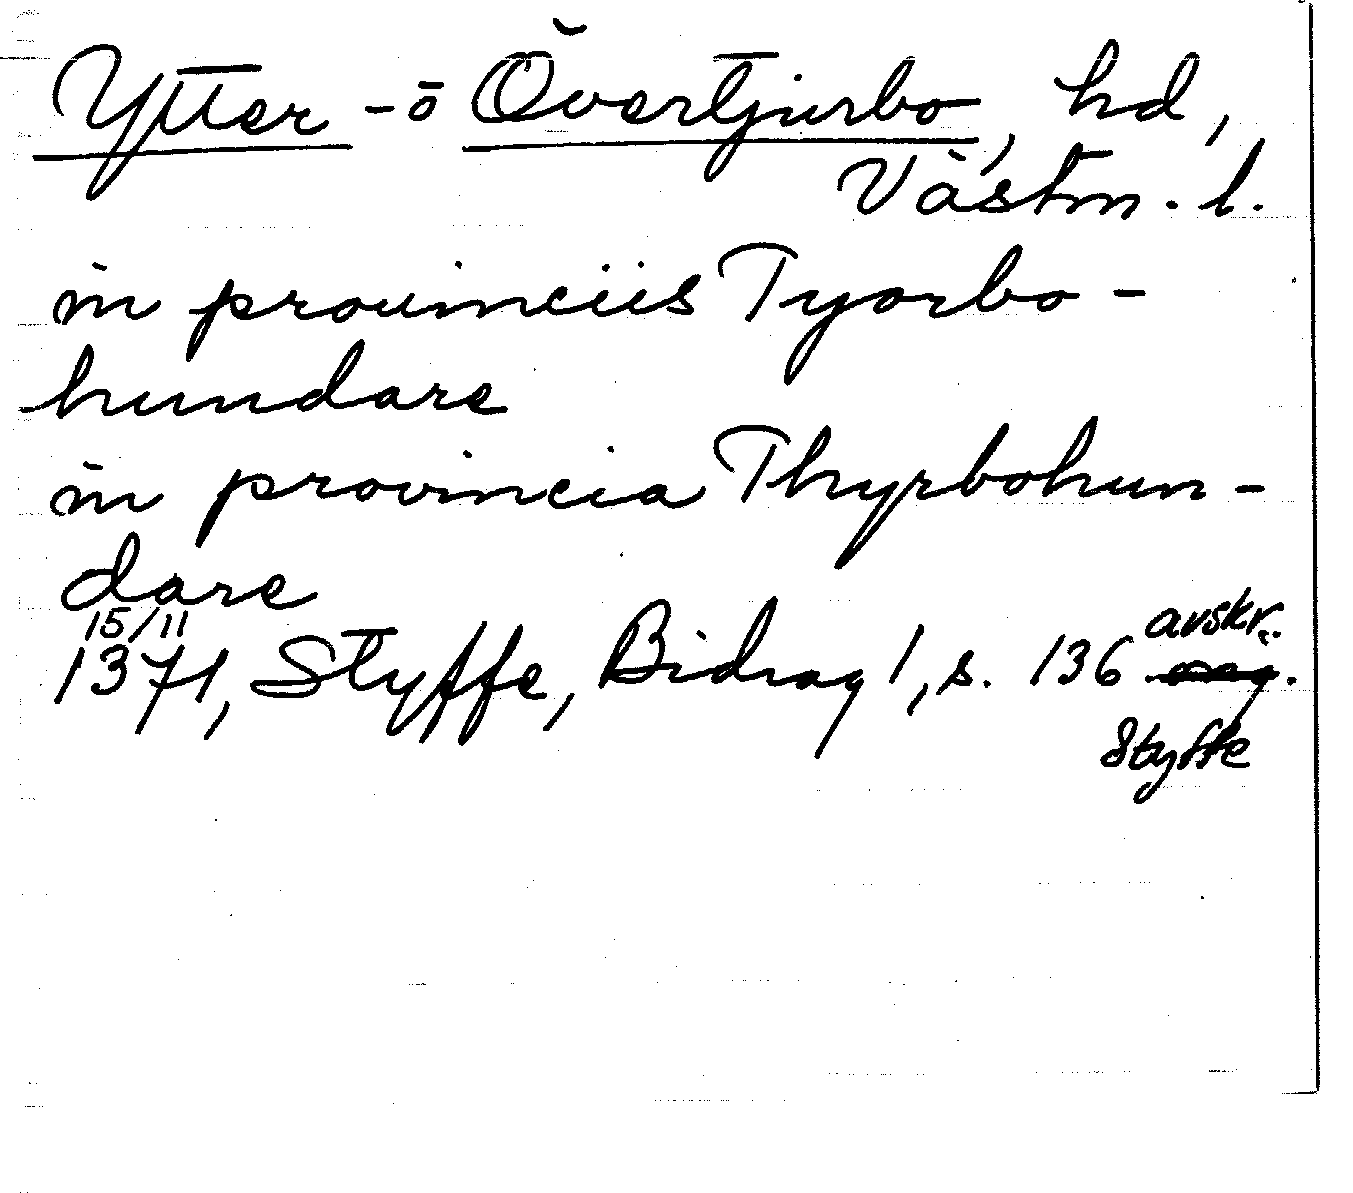 Ytter - o Övertjurbo, hd,
Västm. l.
in prouinciis Tyorbo-
hundare
in provincia Thyrbohun-
dare
15/11
1371, Styffe, Bidrag 1, s. 136 avskr.
Styffe